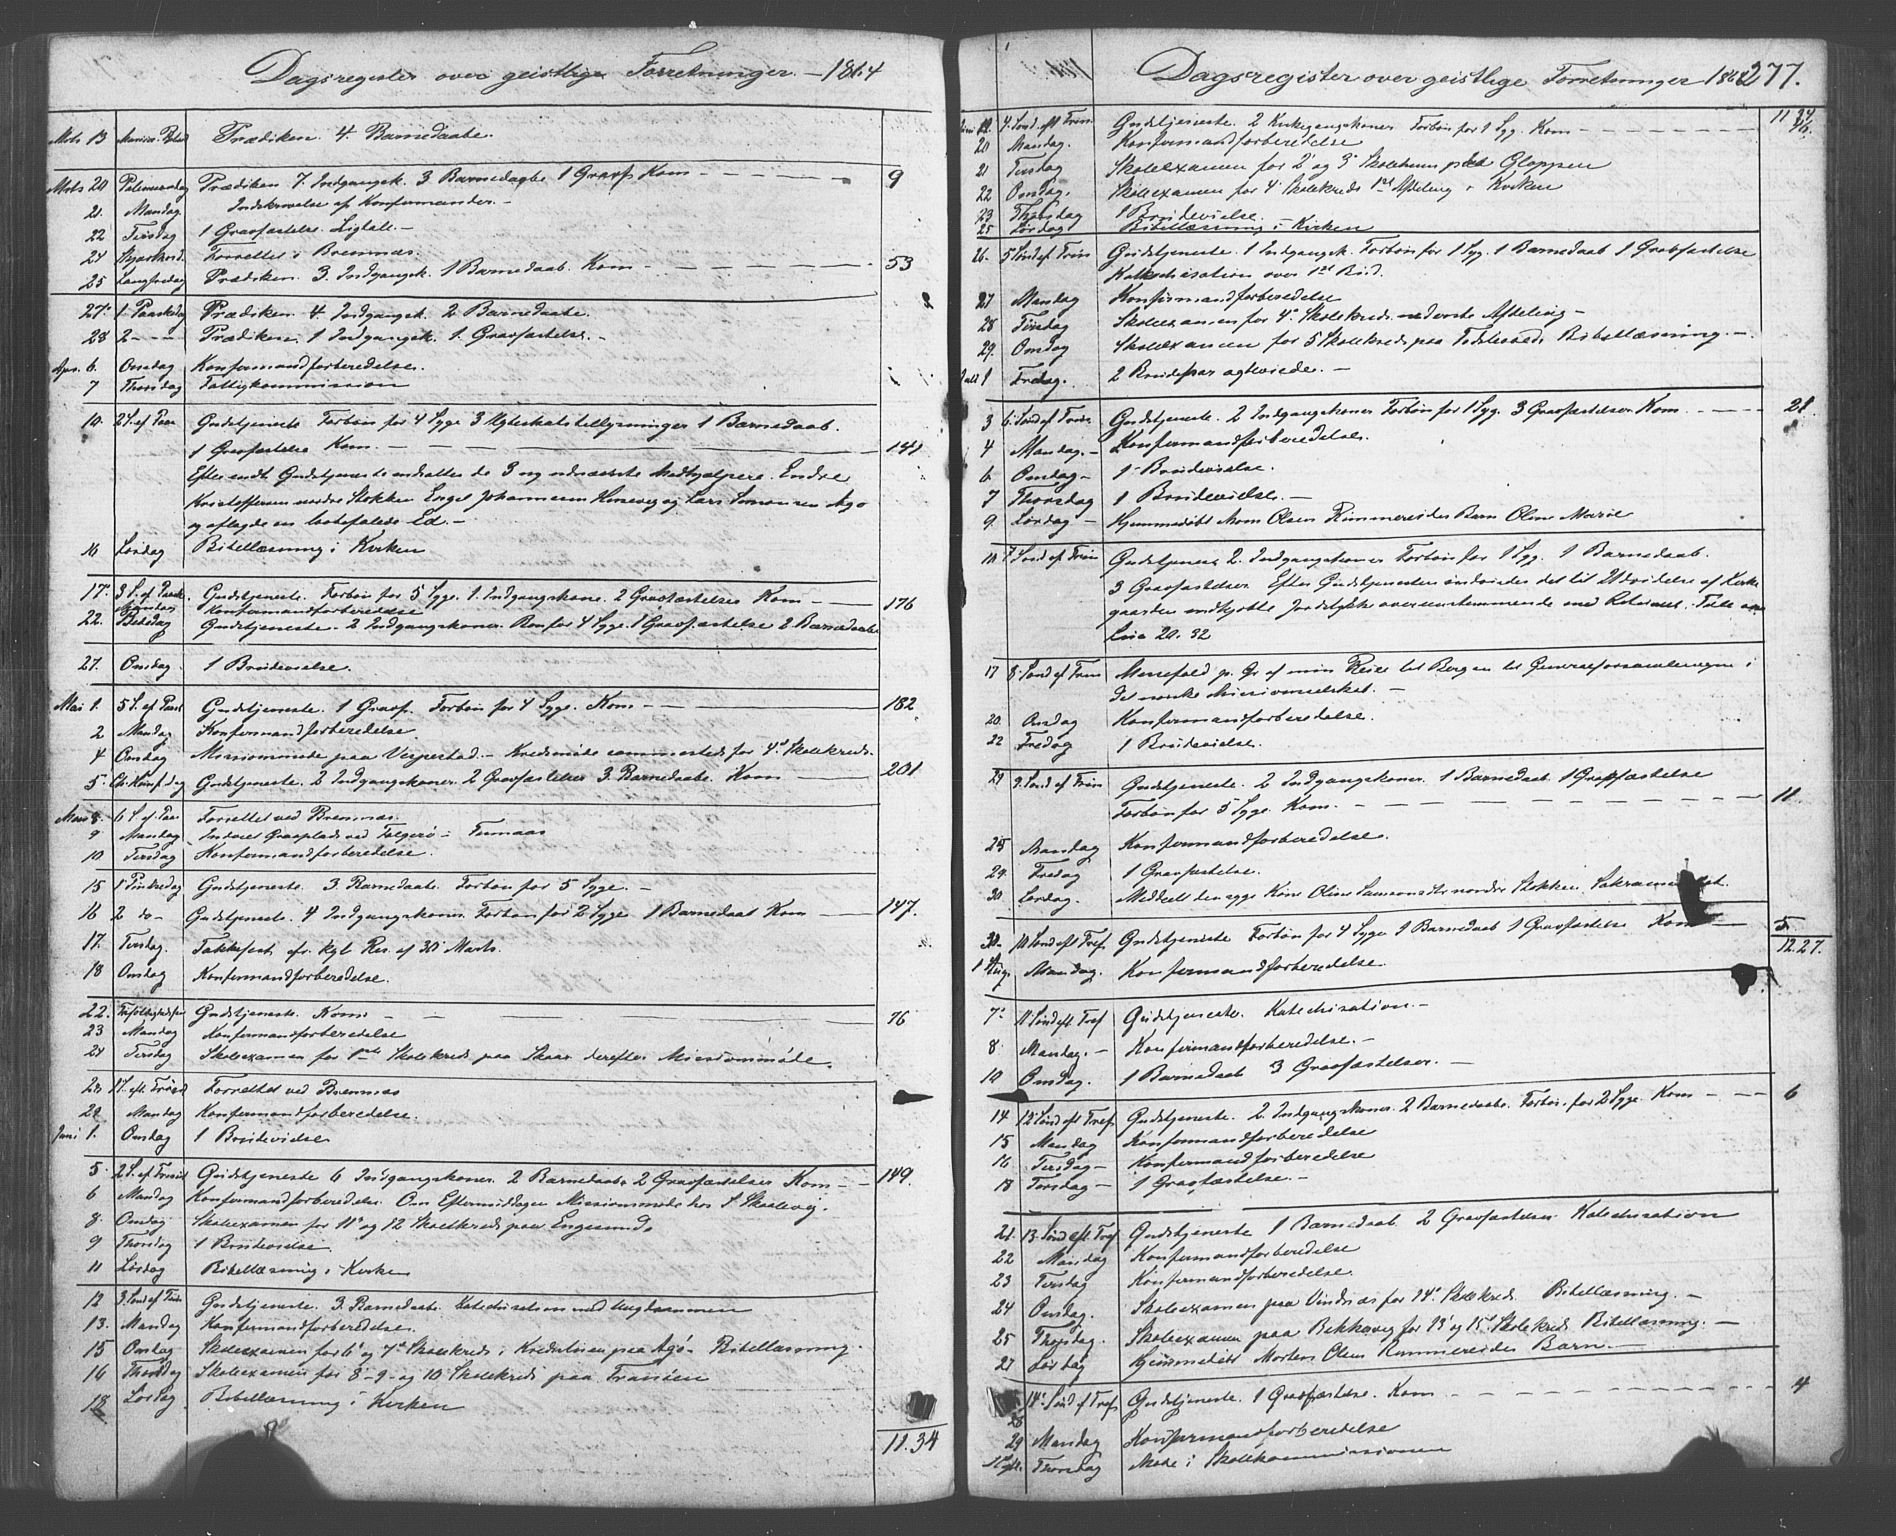 Dagsregister over geistlige Forretninger. — 1864
Mts 13 Prædiken. 4. Barnedaabe.
Mts 20 Palmesøndag Prædiken 7. Indgangsk. 3 Barnedaabe 1 Gravf. Kom — 9
21. Mandag Indskrivelse af Konfirmander. —
22 Tirsdag 1 Gravfæstelse. Ligtale. —
24 Skjærthorsd. Forrettet i Bremnæs.
25 Langfredag Prædiken. 3. Indgangsk. 1 Barnedaab. Kom — 53
27. 1 Paaskdag Prædiken. 4. Indgangsk. 2 Barnedaabe.
28 2 — Prædiken. 1 Indgangsk. 1. Gravfæstelse. —
Apr. 6. Onsdag Konfirmandforberedelse.
7 Thorsdag Fattigkommission
10. 2 S. ef Paas Gudstjeneste Forbøn for 4 Syge 3 Ægteskabstillysninger 1 Barnedaab.
1 Gravfæstelse Kom — 141
Efter endt Gudstjeneste indsattes de 3 ny udnævnte Medhjælpere. Endre
Kristoffersen nordre Stokken Engel Johannesen og Lars Simonsen Agø
og aflagde en befalede Ed. —
16 Lørdag Bibellæsning i Kirken
17. 3 S. ef Paask. Gudstjeneste. Forbøn for 5 Syge. 1. Indgangskone. 2 Gravfæstelser Kom — 176
Mandag Konfirmandforberedelse
22. Bededag Gudstjeneste. 2 Indgangskoner. Bøn for 4 Syge. 1 Gravfæstelse 2 Barnedaabe
27. Onsdag 1 Brudevielse.
Mai 1. 5 S. ef Paask Gudstjeneste. 1 Gravf. Forbøn for 4 Syge. Kom — 182
2 Mandag Konfirmandforberedelse.
4 Onsdag Missionsmøde paa Vespestad. — Kredsmøde sammesteds for 4de Skolekreds.
5. Ch: Himf. dag Gudstjeneste. 2 Indgangskoner. 2 Gravfæstelser 3. Barnedaabe. Kom — 201
Mai 8. 6 S. ef Paa Forrettet ved Bremnæs.
9 Mandag Indviet Gravplads ved Folgerø
10 Tirsdag Konfirmandforberedelse.
15 1 Pinksedag Gudstjeneste. 3. Barnedaabe. Forbøn for 5 Syge. —
16 2 do — Gudstjeneste. 4 Indgangskoner. Forbøn for 2 Syge 1 Barnedaab Kom — 147.
17. Tirsdag. Takkefest efr. kgl Res. af 30 Marts.
18 Onsdag Konfirmandforberedelse.
22. Trefoldighedsfest Gudstjeneste. Kom: — 76
23 Mandag Konfirmandforberedelse
24 Tirsdag Skoleexamen for 1ste Skolekreds paa Skaar derefter Missionsmøde.
1 S. eft. Trinit Forrettet ved Bremnæs
Mandag Konfirmandforberedelse.
Juni 1. Onsdag 1 Brudevielse
5. 2 S. ef. Trinit Gudstjeneste 6 Indgangskoner. 2 Barnedaabe 2 Gravfæstelser Kom — 149.
6 Mandag Konfirmandforberedelse. Om Eftermiddagen Missionsmøde hos Skaalevig.
8. Onsdag Skoleexamen for 11te og 12 Skolekreds paa Engesund
9 Thorsdag 1 Brudevielse
11 Lørdag Bibellæsning i Kirken
12 3. Sønd ef Trin Gudstjeneste. 3. Barnedaabe. Katechisation med Ungdommen
13. Mandag Konfirmandforberedelse.
15 Onsdag Skoleexamen for 6te og 7de Skolekreds i Kredsstuen paa Agø. Bibellæsning.
16 Thorsdag Skoleexamen for 8 - 9 - og 10 Skolekreds paa
18 Lørdag. Bibellæsning i Kirken
11.34
Dagsregister over geistlige Forretninger 186 277.
Juni 19. 4. Sønd. eft Trin. Gudstjeneste. 2 Kirkegangskoner Forbøn for 1 Syg. Kom — 11 34
20 Mandag. Konfirmandforberedelse
21 Tirsdag Skoleexamen for 2de og 3de Skoleherm paa Gloppen
22 Onsdag. Skoleexamen for 4 Skolekreds 1ste Afdeling i Kirken
23 Thorsdag 1 Brudevielse.
25 Lørdag Bibellæsning i Kirken
26. 5 Sønd ef Trin Gudstjeneste. 1 Indgangsk. Forbøn for 1 Syg. 1 Barnedaab 1 Gravfæstelse
Katechisation over 1ste Bud.
27 Mandag Konfirmandforberedelse
28 Tirsdag Skoleexamen for 4de Skolekreds nederste Afdeling —
29. Onsdag Skoleexamen for 5 Skolekreds paa Bibellæsning. —
Juli 1 Fredag. 2 Brudepar agteviede. —
3 6. Sønd ef Trin Gudstjeneste. 2 Indgangskoner Forbøn for 1 Syg. 3 Gravfæstelser Kom — 21.
4 Mandag. — Konfirmandforberedelse.
6 Onsdag — 1 Brudevielse.
7 Thorsdag 1 Brudevielse. —
9. Lørdag — Hjemmedøbt Mons Olsen Rimmereides Barn Oline Marie
10 7 Sønd ef Trin Gudstjeneste 2. Indgangskoner Forbøn for 1 Syg. 1 Barnedaab.
3 Gravfæstelser. Efter Gudstjenesten indviedes det til Udvidelse af Kirke
gaarden indkjøbte Jordstykke overensstemmende med Ritualet. Tale over
Luc 20. 32
17 8. Sønd ef Trin Messefald p. Gr af min Reise til Bergen til Generalforsamlingen i
det norske Missionsselskab. —
20. Onsdag Konfirmandforberedelse.
22 Fredag 1 Brudevielse.
24 9. Sønd ef Trin Gudstjeneste. 2 Indgangskoner. 1 Barnedaab. 1 Gravfæstelse
Forbøn for 5 Syge. Kom. — 11.
25 Mandag Konfirmandforberedelse.
29. Fredag 1 Gravfæstelse.
30. Lørdag. Meddelt den syge Kone Oline nordre Stokken Sakramentet.
31. 10 Sønd eft Tref. Gudstjeneste Forbøn for 4 Syge 1 Barnedaab 1 Gravfæstelse Kom — 5
12.27.
1 Aug. Mandag. Konfirmandforberedelse.
7. 11 Sønd eft. Tref Gudstjeneste. Katechisation. —
8. Mandag. — Konfirmandforberedelse. —
10 Onsdag. 1 Barnedaab 3 Gravfæstelser. —
14 12 Sønd eft Tref Gudstjeneste. 2 Indgangskoner. 2 Barnedaabe. Forbøn for 2 Syge. Kom — 6
15 Mandag Konfirmandforberedelse
16 Tirsdag — Konfirmandforberedelse
18 Torsdag — 1 Gravfæstelse. —
21. 13. Sønd eft. Tref Gudstjeneste 1 Barnedaab. 2 Gravfæstelser Katechisation
22 Mandag Konfirmandforberedelse
23 Tirsdag Konfirmandforberedelse.
24 Onsdag. Skoleexamen paa Vindnæs for 14de Skolekreds. Bibellæsning. —
25 Thorsdag. Skoleexamen paa Bekkevig for 13de og 15de Skolekreds Bibellæsning. —
27 Lørdag Hjemmedøbt Morten Olsen Rimmereides Barn. —
28 14de Sønd ef Tref Gudstjeneste. 1 Gravfæstelse. Kom — 4
29 Mandag Konfirmandforberedelse
Thorsdag Møde i Skolekommissionen